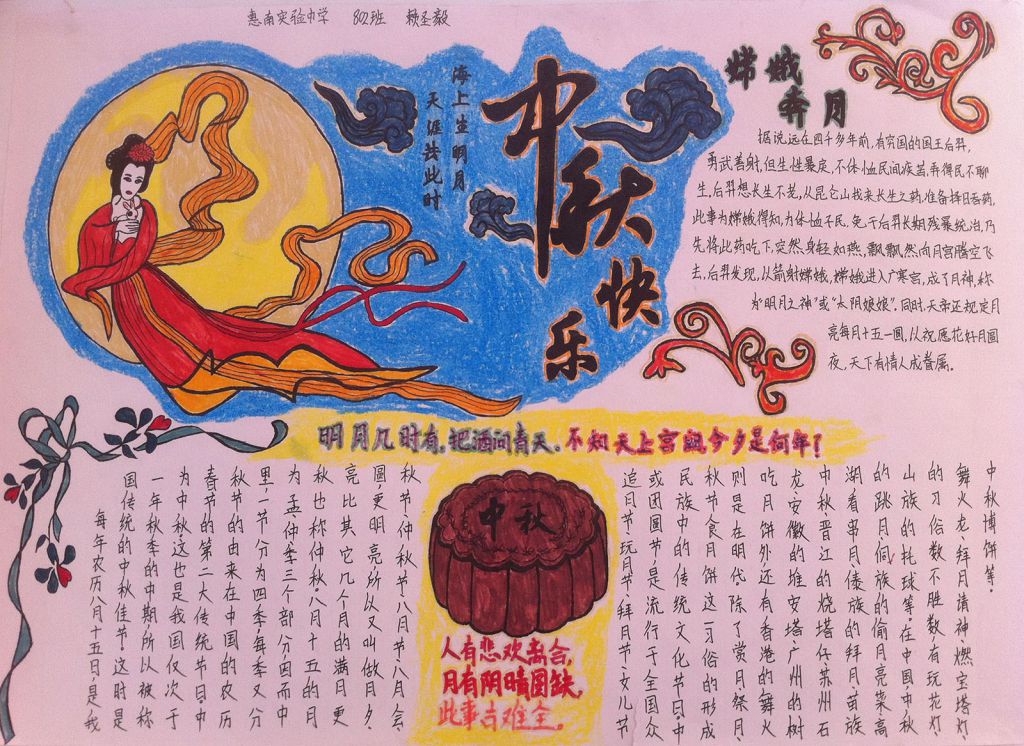 惠南实验中学 802班 赖圣毅
海上生明月
天涯共此时
中秋快乐
嫦娥
奔月
据说远在四千多年前,有穷国的国王后羿,
勇武善射,但生性暴戾,不体恤民间疾苦,弄得民不聊
生,后羿想长生不老,从昆仑山找来长生之药,准备择日吞药,
此事为嫦娥得知,为体恤平民,免于后羿长期残暴统治,乃
先将此药吃下,突然,身轻如燕,飘飘然向月宫腾空飞
去,后羿发现,从箭射嫦娥,嫦娥进入广寒宫,成了月神,称
为“明月之神”或“太阴娘娘”.同时,天帝还规定月
亮每月十五一圆,以祝愿花好月圆
夜,天下有情人成眷属。
明月几时有,把酒问青天。不知天上宫阙,今夕是何年?
每年农历八月十五日,是我
国传统的中秋佳节。这时是
一年秋季的中期,所以被称
为中秋。这也是我国仅次于
春节的第二大传统节日。中
秋节的由来在中国的农历
里,一节分为四季,每季又分
为孟仲季三个部分,因而中
秋也称仲秋。八月十五的月
亮比其它几个月的满月更
圆,更明亮,所以又叫做月夕、
秋节、仲秋节、八月节、八月会、
中秋
人有悲欢离合,
月有阴晴圆缺,
此事古难全。
追月节、玩月节、拜月节、女儿节
或团圆节,是流行于全国众
民族中的传统文化节日。中
秋节食月饼这一习俗的形成
则是在明代。除了赏月、祭月、
吃月饼外,还有香港的舞火
龙、安徽的堆安塔、广州的树
中秋、晋江的烧塔仔、苏州石
湖看串月、傣族的拜月、苗族
的跳月、侗族的偷月亮菜、高
山族的托球等。在中国中秋
的习俗数不胜数,有玩花灯、
舞火龙、拜月请神、燃宝塔灯、
中秋博饼等。